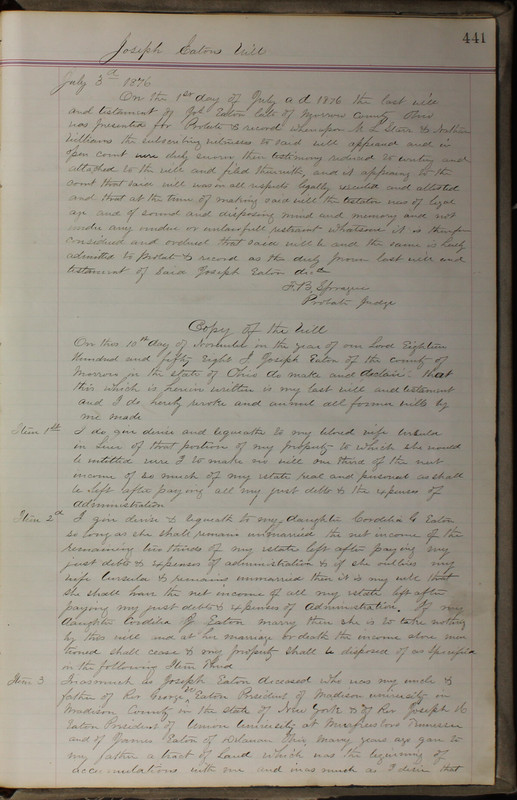 441
Joseph Eatons Will
July 3d 1876
On the 1st day of July a d 1876 the last will
and testament of Jos Eaton late of Morrow County, Ohio
was presented for Probate & record whereupon M. L. & Nathan
Williams the subscribing witnesses to said will appeared and in
open Court were duly sworn their testimony reduced to writing and
attached to the will and filed therewith, and it appearing to the
court that said will was in all respects legally executed and attested
and that at the time of making said will the testator was of legal
age and of sound and disposing mind and memory and not
under any undue or unlawfull restraint whatsoever it is therefore
considered and ordered that said will be and the same is hereby
admitted to Probat & record as the duly proven last will and
testament of said Joseph Eaton decd
Sprague
Probate Judge
Copy of the Will
On this 10th day of November in the year of our Lord Eighteen
Hundred and fifty Eight I Joseph Eaton of the County of
Morrow in the State of Ohio do make and declare that
this which is herein written is my last will and testament
and I do hereby revoke and annul all former wills by
me made
Item 1st I do give devise and bequeath to my beloved wife Ursula
in lieu of that portion of my property to which she would
be entitled were I to make no will one third of the net
income of so much of my estate real and personal as shall
be left after paying all my just debts & the expenses of
administration
Item 2d I give devise & bequeath to my daughter Cordelia G Eaton
so long as she shall remain unmarried the net income of the
remaining two thirds of my estate left after paying my
just debts & expenses of administration & if she outlives my
wife Ursula & remains unmarried then it is my will that
she shall have the net income of all my estate left after
paying my just debts & expenses of Administration. If my
daughter Cordelia G Eaton marry then she is to take nothing
by this will and at her marriage or death the income above men
tioned shall cease & my property shall be disposed of as specified
in the following Item Third
Item 3 Inasmuch as Joseph Eaton deceased who was my uncle &
father of Rev George W Eaton President of Madison university in
Madison County in the State of New York & of Rev Joseph H
Eaton President of Union University at Murfresboro Tennessee
and of James Eaton of Delaware Ohio many years ago gave to
my father a tract of Land which was the beginning of
accumulations with me and inasmuch as I desire that